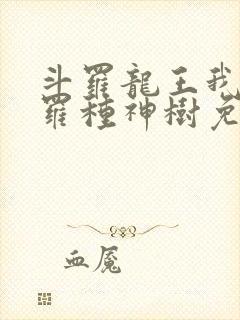 斗羅龍王我
羅種神樹免
血魘